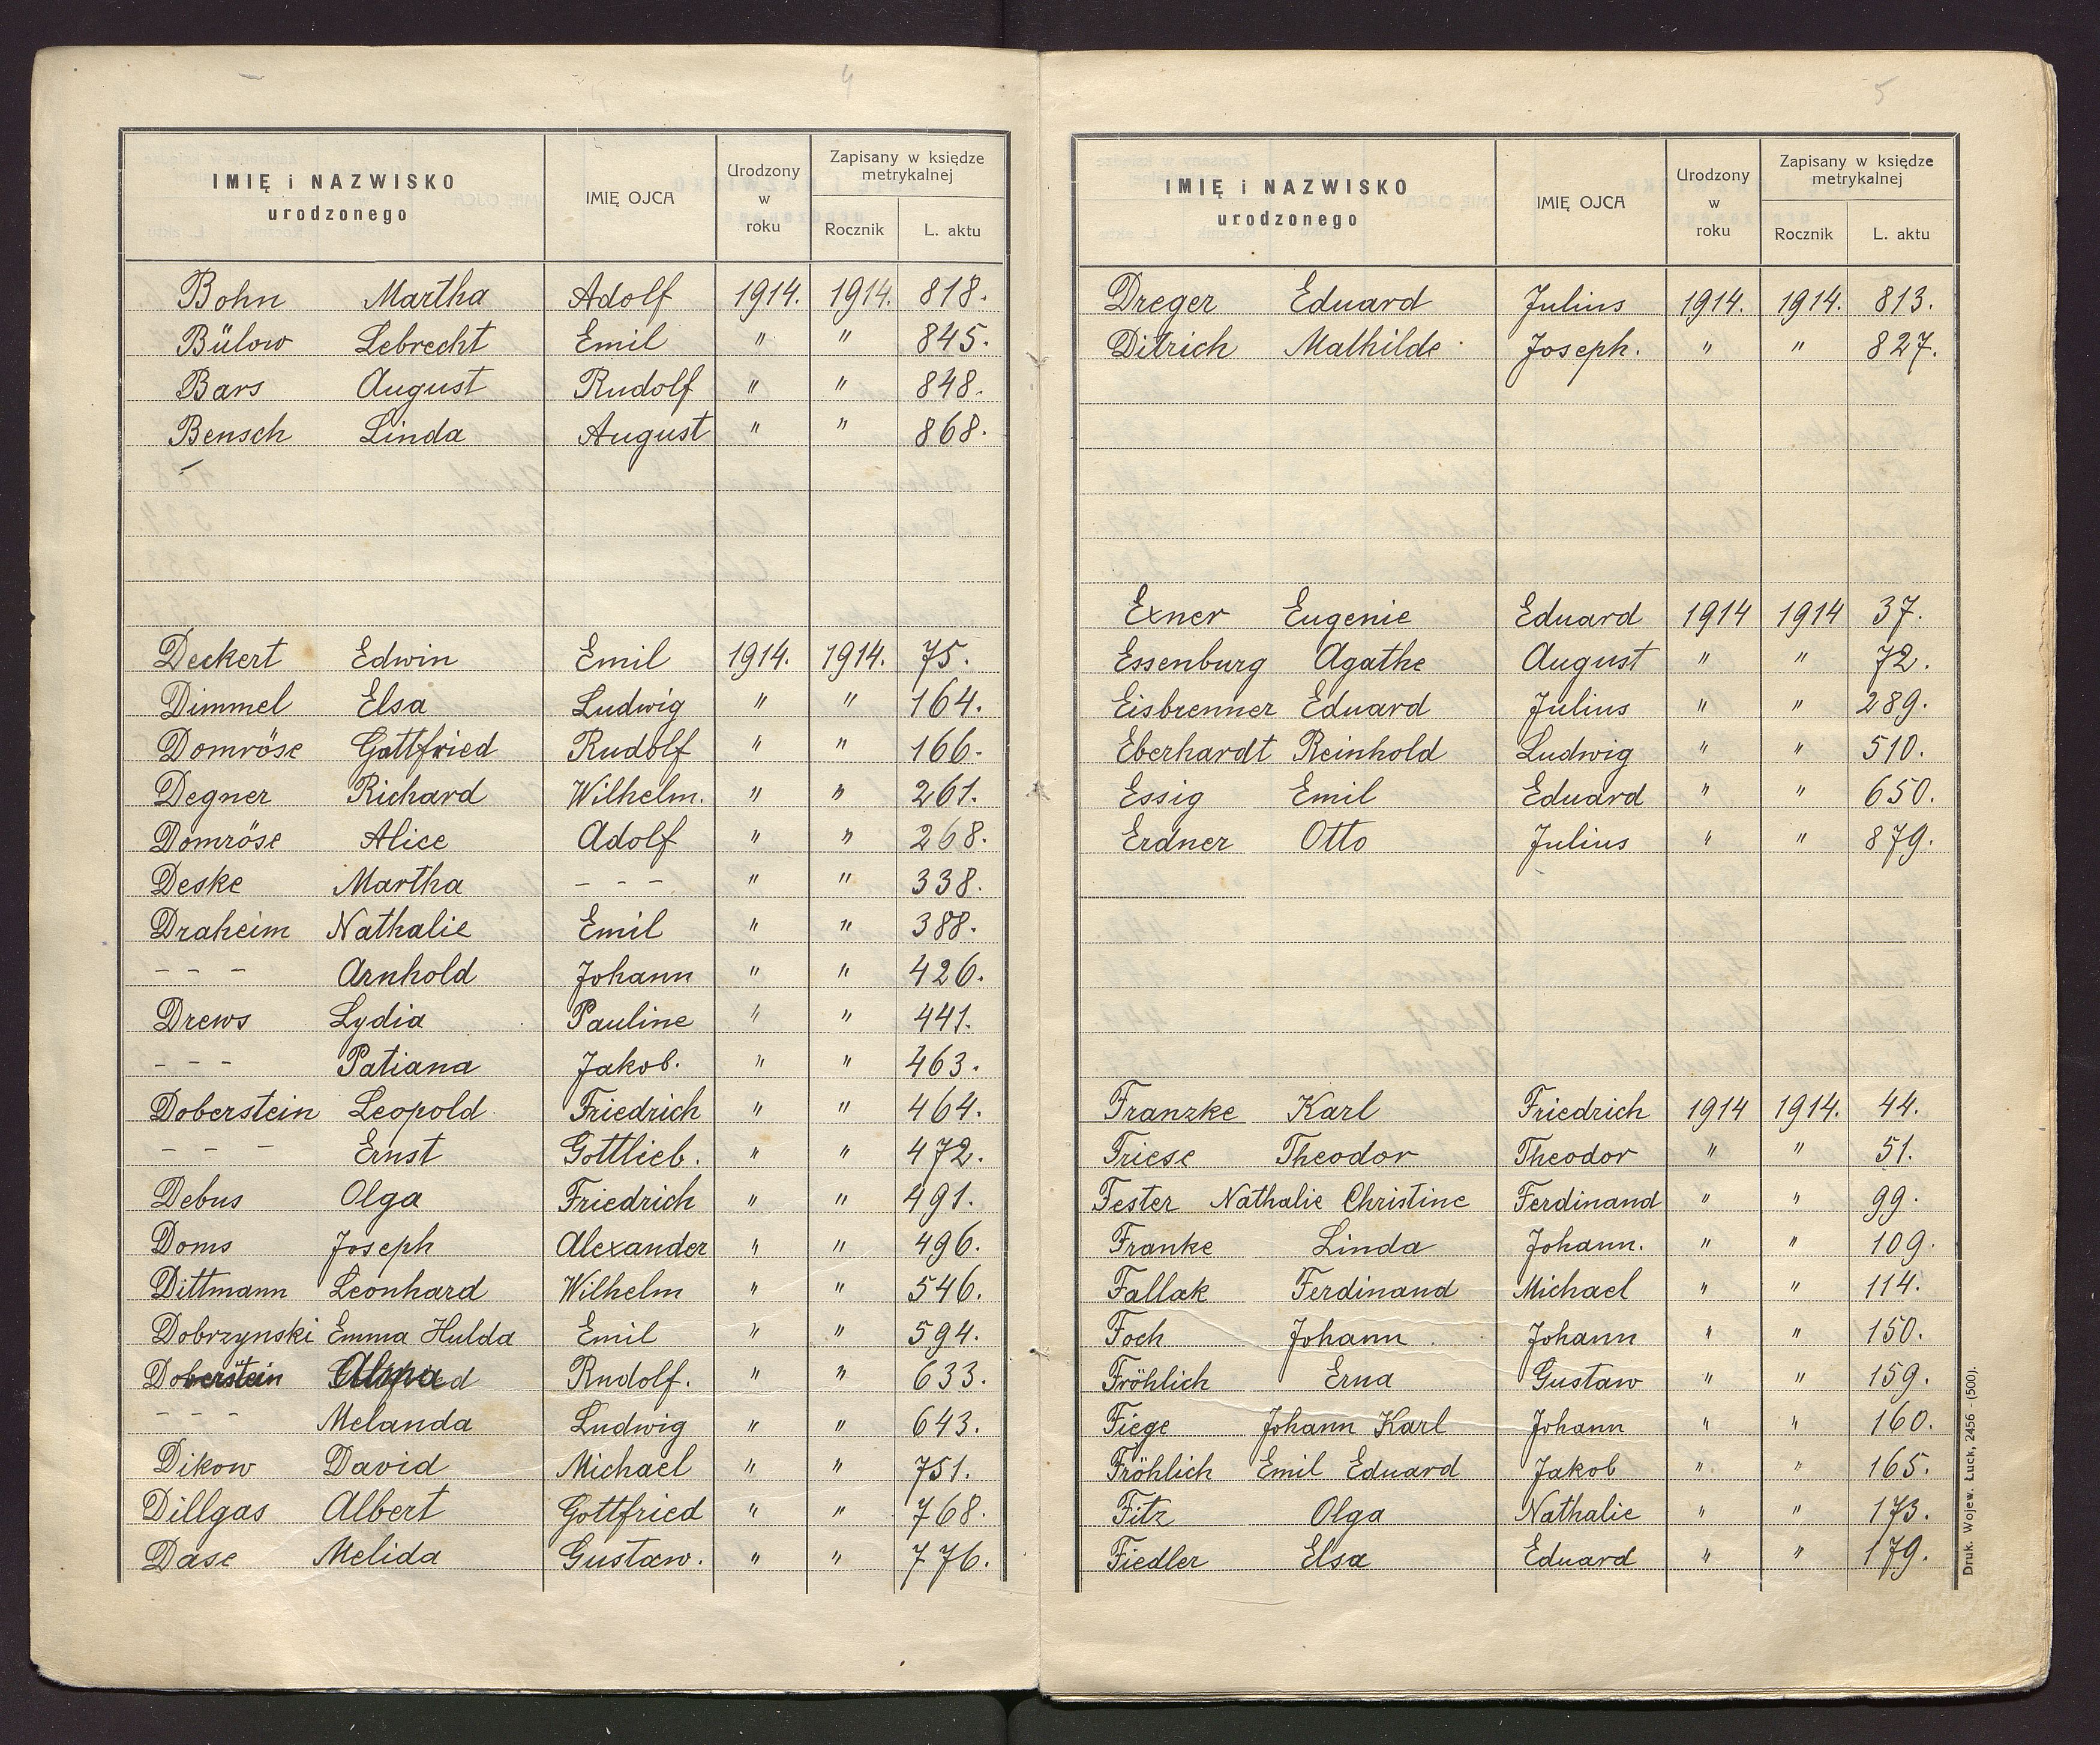 4
IMIĘ i NAZWISKO urodzonego IMIĘ OJCA Urodzony w roku Zapisany w księdze metrykalnej Rocznik L. aktu
Bohn Martha Adolf 1914. 1914. 818.
Bülow Lebrecht Emil " " 845.
Bars August Rudolf " " 848.
Bensch Linda August " " 868.
Deckert Edwin Emil 1914. 1914. 75.
Dimmel Elsa Ludwig " " 164.
Domröse Gottfried Rudolf " " 166.
Degner Richard Wilhelm. " " 261.
Domröse Alice Adolf " " 268.
Deske Martha - - - " " 338.
Draheim Nathalie Emil " " 388.
- - - Arnhold Johann " " 426.
Drews Lydia Pauline " " 441.
- - - Patiana Jakob. " " 463.
Doberstein Leopold Friedrich " " 464.
- - - Ernst Gottlieb. " " 472.
Debus Olga Friedrich " " 491.
Doms Joseph Alexander " " 496.
Dittmann Leonhard Wilhelm " " 546.
Dobrzynski Emma Hulda Emil " " 594.
Doberstein Rudolf. " " 633.
- - - Melanda Ludwig " " 643.
Dikow David Michael " " 751.
Dillgas Albert Gottfried " " 768.
Dase Melida Gustaw. " " 776.
5
IMIĘ i NAZWISKO urodzonego IMIĘ OJCA Urodzony w roku Zapisany w księdze metrykalnej Rocznik L. aktu
Dreger Eduard Julius 1914. 1914. 813.
Ditrich Mathilde Joseph. " " 827.
Exner Eugenie Eduard 1914 1914 37.
Essenburg Agathe August " " 72.
Eisbrenner Eduard Julius " " 289.
Eberhardt Reinhold Ludwig " " 510.
Essig Emil Eduard " " 650.
Erdner Otto Julius " " 879.
Franzke Karl Friedrich 1914 1914. 44.
Friese Theodor Theodor " " 51.
Fester Nathalie Christine Ferdinand " " 99.
Franke Linda Johann. " " 109.
Fallak Ferdinand Michael " " 114.
Foch Johann Johann " " 150.
Fröhlich Erna Gustaw " " 159.
Fiege Johann Karl Johann " " 160.
Fröhlich Emil Eduard Jakob " " 165.
Fitz Olga Nathalie " " 173.
Fiedler Elsa Eduard " " 179.
Druk. Wojew. Łuck, 2456 - (500).